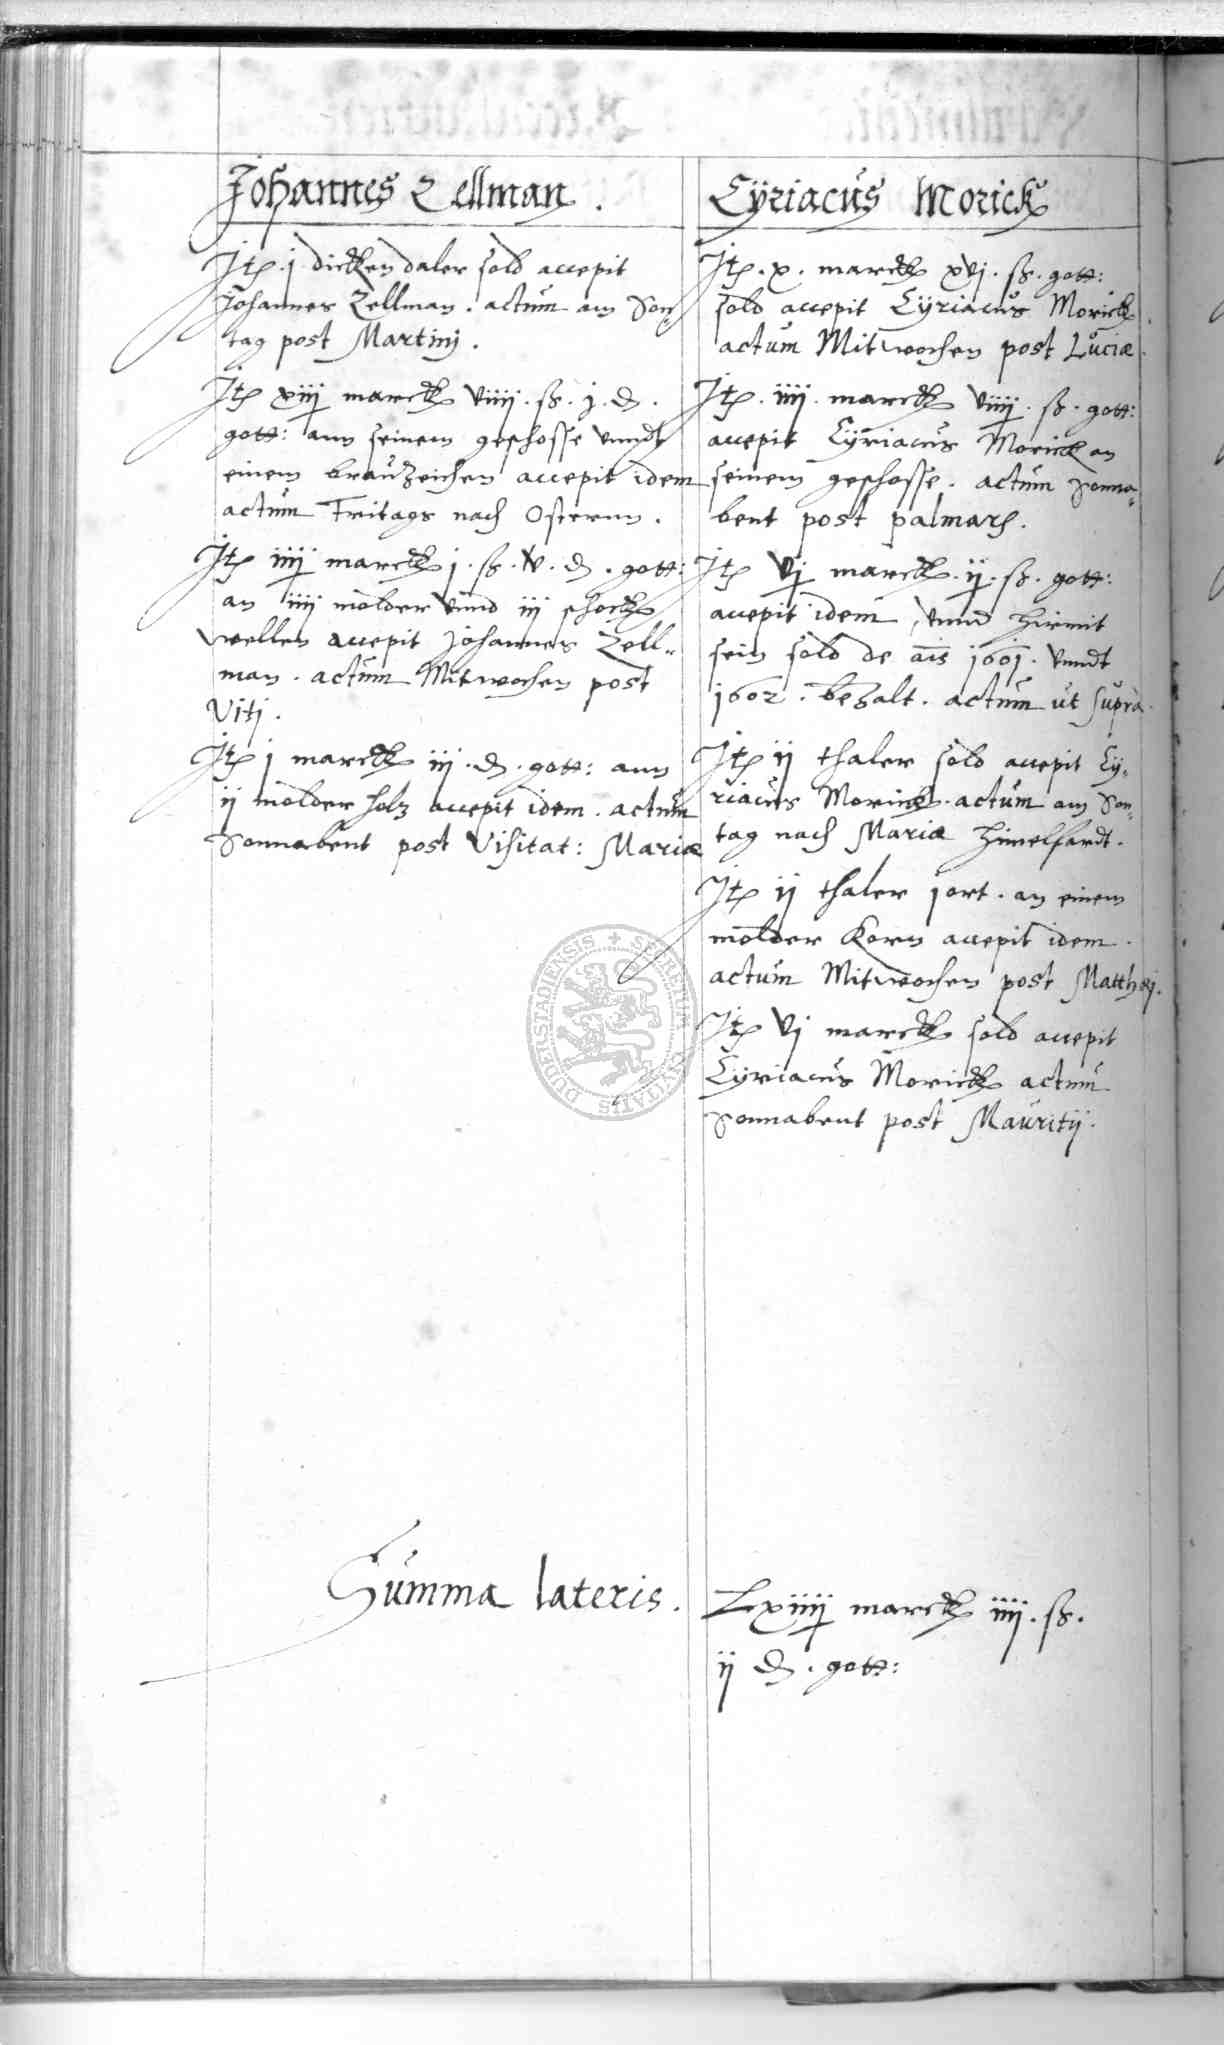 Johannes Zellman.
Jtem j dicken daler sold accepit
Johannes Zellman. actum am Son-
tag post Martinj.
Jtem xiiij marck viiij. ß. j. d.
gott: ann seinem geschosse vnndt
einem brauwzeichen accepit idem
actum Fritags nach Osternn.
Jtem iiij marck j. ß. v. d. gott:
an iiij molder vnnd iij schock
wellen accepit Johannes Zell-
man. actum Mitwochen post
Vitj.
Jtem j marck iij. d. gott: ann
ij molder holz accepit idem. actum
Sonnabent post Visitat: Mariæ
Cÿriacus Morick
Jtem. x. marck xvj. ß. gott:
sold accepit Cÿriacus Morick
actum Mitwochen post Luciæ.
Jtem. iiij. marck viiij. ß. gott:
accepit Cÿriacus Morick an
seinem geschosse. actum Sonna-
bent post palmarum.
Jtem vj marck. ij. ß. gott:
accepit idem, vnnd hirmit
sein sold de añis 1601. vnndt
1602. bezalt. actum ut supra.
Jtem ij thaler sold accepit Cÿ-
riacus Morick. actum am Son-
tag nach Mariæ himelfardt.
Jtem ij thaler j ort. an einem
molder Korn accepit idem.
actum Mitwochen post Matthæj.
Jtem vj marck sold accepit
Cÿriacus Morick actum
Sonnabent post Mauritij.
SECRETUM CIVITATIS DUDERSTADIENSIS
Summa lateris.
Lxiiij marck iiij. ß.
ij d. gott: